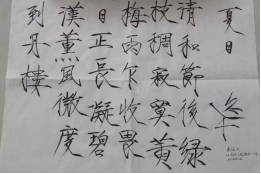 夏日
清和節後綠
枝稠寂寞黃
梅雨乍收畏
日正長凝碧
漢薰風微度
到丹樓